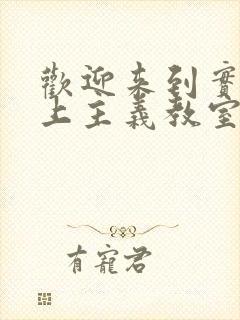 歡迎來到實
上主義教室
有寵君